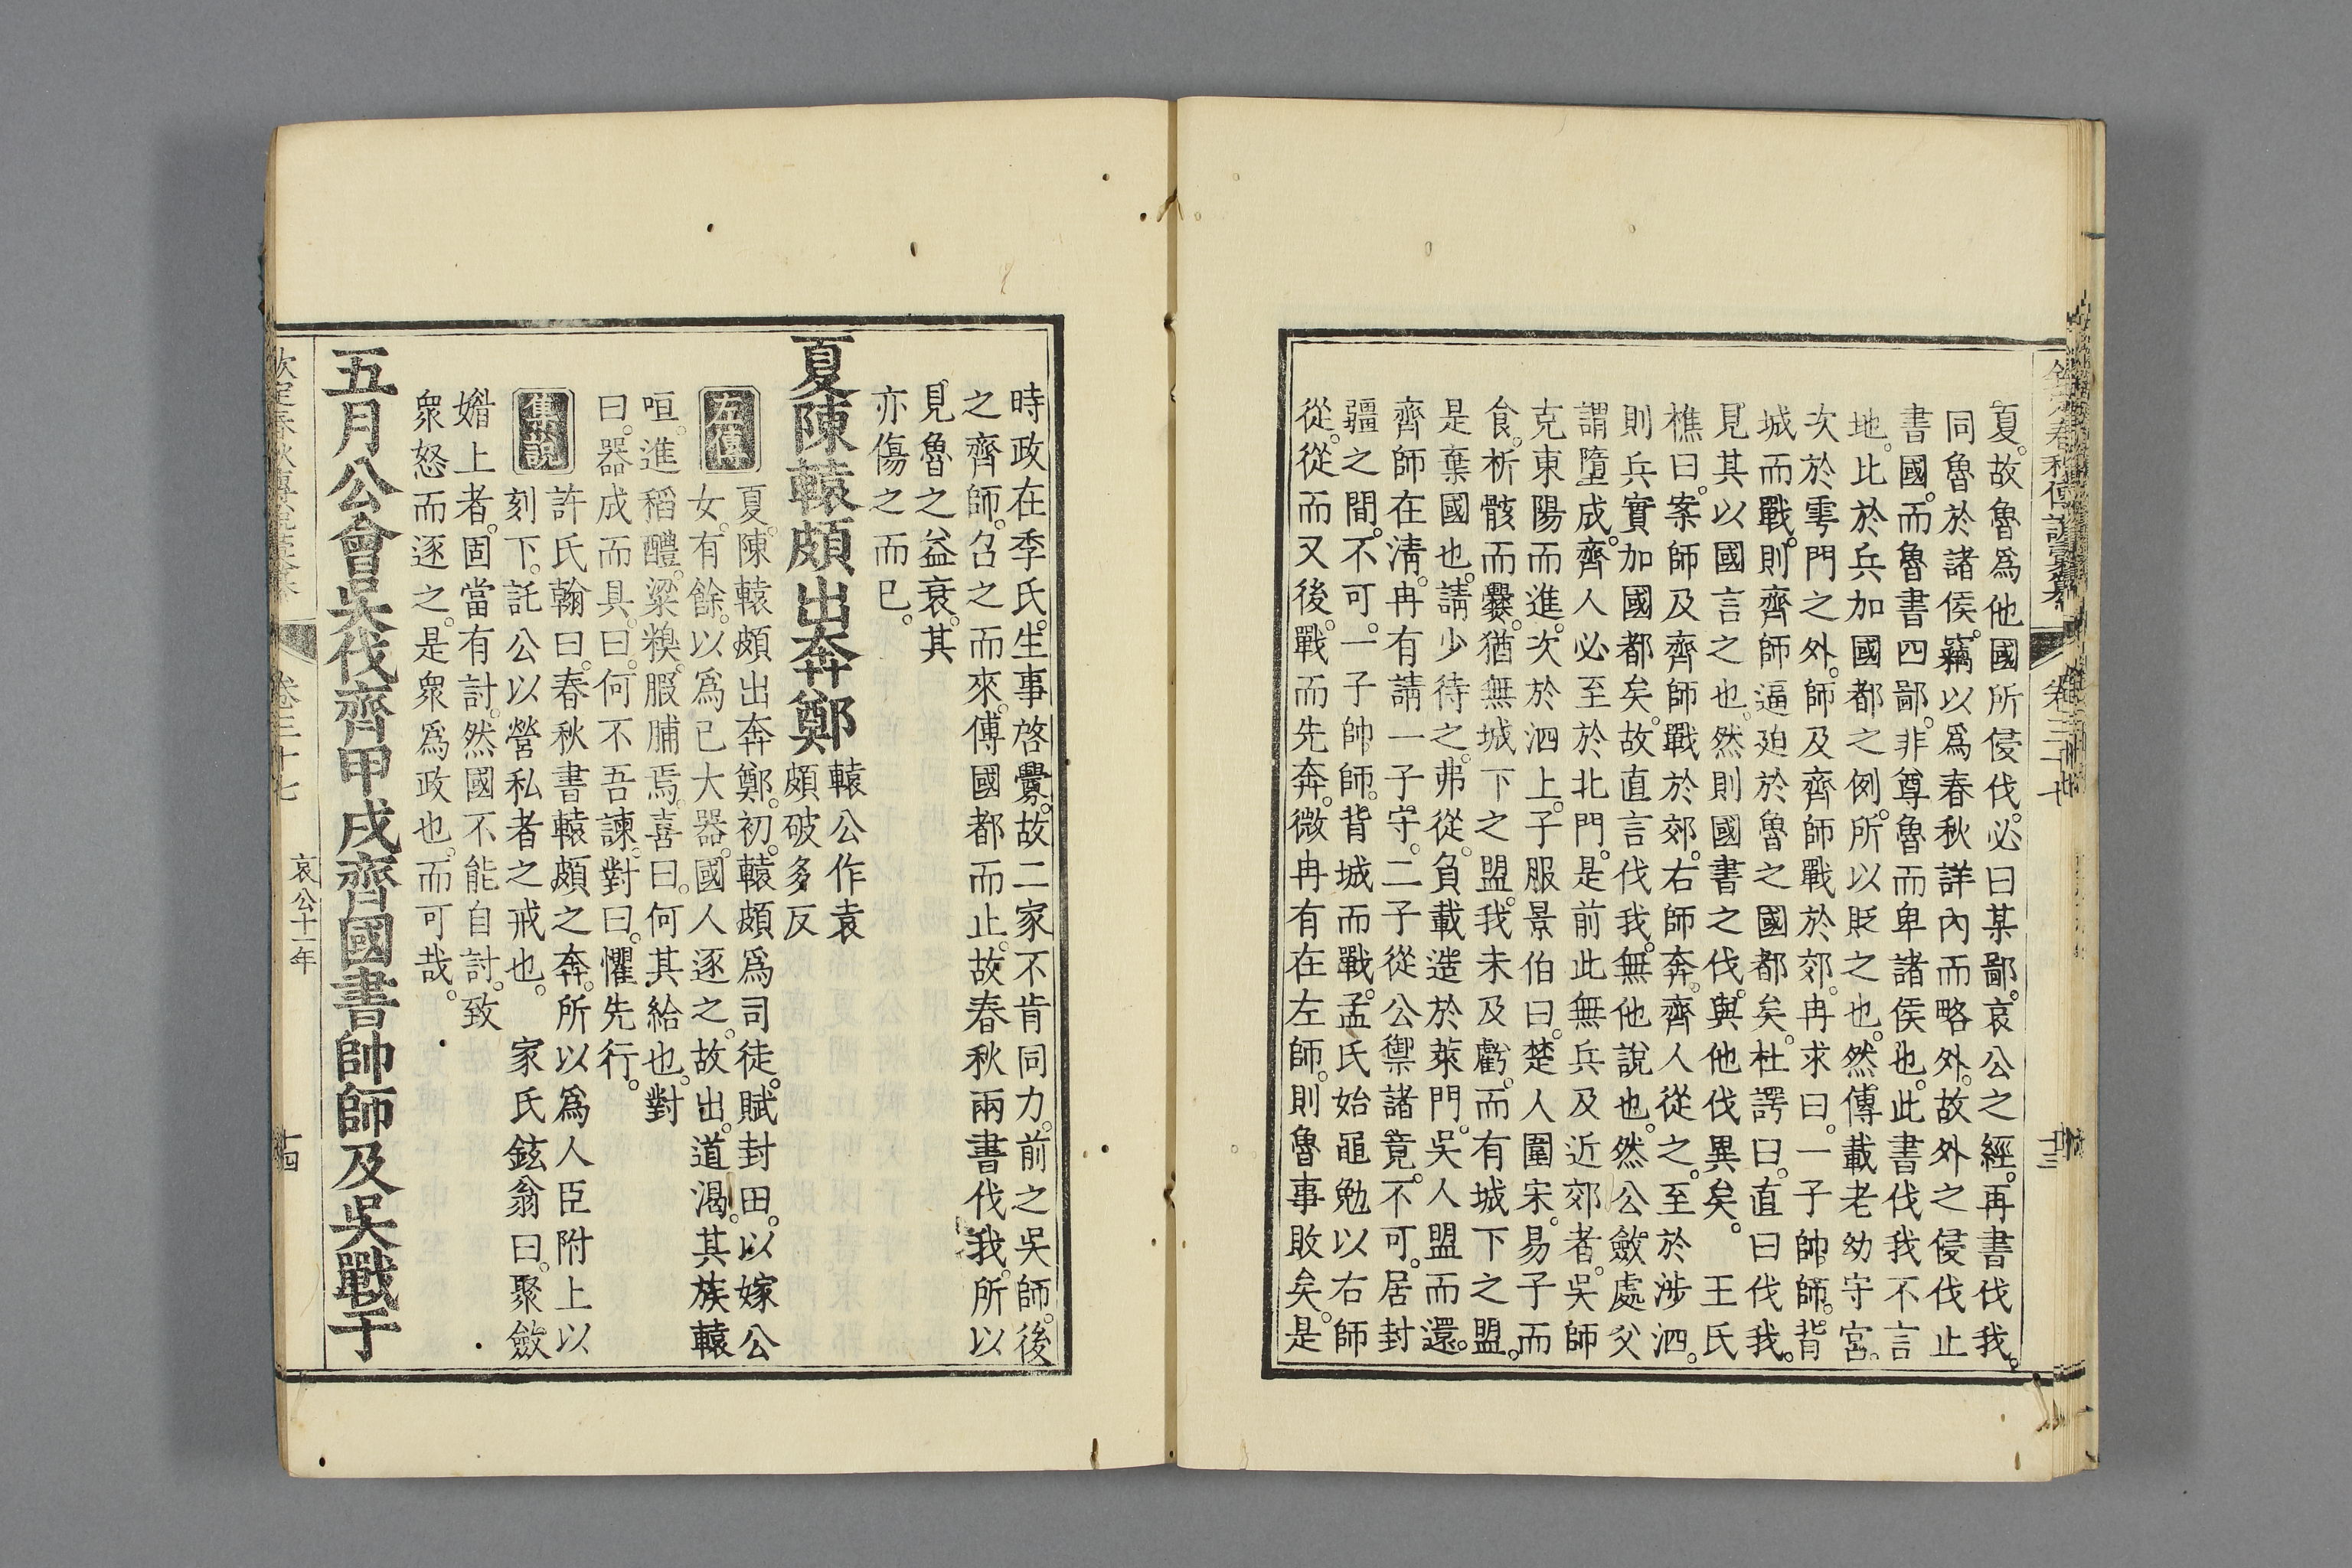 夏。故魯爲他國所侵伐。必曰某鄙。哀公之經。再書伐我。
同魯於諸侯。竊以爲春秋詳內而略外。故外之侵伐止
書國。而魯書四鄙。非尊魯而卑諸侯也。此書伐我不言
地。比於兵加國都之例。所以貶之也。然傳載老幼守宮。
次於雩門之外。師及齊師戰於郊。冉求曰。一子帥師。背
城而戰。則齊師逼廹於魯之國都矣。杜諤曰。直曰伐我。
見其以國言之也。然則國書之伐。與他伐異矣。 王氏
樵曰。案師及齊師戰於郊。右師奔。齊人從之。至於涉泗。
則兵實加國都矣。故直言伐我。無他說也。然公斂處父
謂墮成。齊人必至於北門。是前此無兵及近郊者。吳師
克東陽而進。次於泗上。子服景伯曰。楚人圍宋。易子而
食。析骸而爨。猶無城下之盟。我未及虧。而有城下之盟。
是棄國也。請少待之。弗從。負載造於萊門。吳人盟而還。
齊師在清。冉有請一子守。二子從公禦諸竟。不可。居封
疆之間。不可。一子帥師。背城而戰。孟氏始黽勉以右師
從。從而又後。戰而先奔。微冉有在左師。則魯事敗矣。是
時政在季氏。生事啓釁。故二家不肯同力。前之吳師。後
之齊師。召之而來。傅國都而止。故春秋兩書伐我。所以
見魯之益衰。其
亦傷之而已。
夏陳轅頗出奔鄭 轅公作袁
頗破多反
左傳 夏。陳轅頗出奔鄭。初。轅頗爲司徒。賦封田。以嫁公
女。有餘。以爲已大器。國人逐之。故出。道渴。其族轅
咺。進稻醴。粱糗。腶脯焉。喜曰。何其給也。對
曰。器成而具。曰。何不吾諫。對曰。懼先行。
集說 許氏翰曰。春秋書轅頗之奔。所以爲人臣附上以
刻下。託公以營私者之戒也。 家氏鉉翁曰。聚斂
媚上者。固當有討。然國不能自討。致
衆怒而逐之。是衆爲政也。而可哉。
五月公會吳伐齊甲戌齊國書帥師及吳戰于
卷三十七
哀公十一年
十四